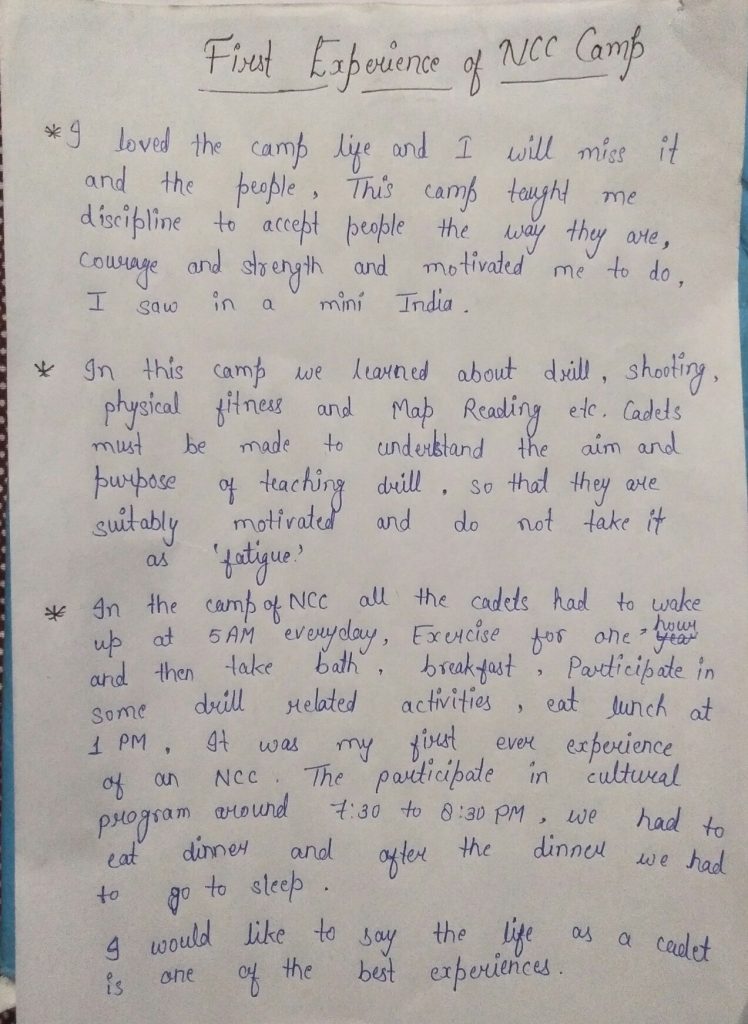 First Experience of NCC Camp
* I loved the camp life and I will miss it
and the people, This camp taught me
discipline to accept people the way they are,
courage and strength and motivated me to do,
I saw in a mini India.
* In this camp we learned about drill, shooting,
physical fitness and Map Reading etc. Cadets
must be made to understand the aim and
purpose of teaching drill, so that they are
suitably motivated and do not take it
as 'fatigue.'
* In the camp of NCC all the cadets had to wake
up at 5 AM everyday, Exercise for one hour
and then take bath, breakfast, Participate in
some drill related activities, eat lunch at
1 PM, It was my first ever experience
of an NCC. The participate in cultural
program around 7:30 to 8:30 PM, we had to
eat dinner and after the dinner we had
to go to sleep.
I would like to say the life as a cadet
is one of the best experiences.